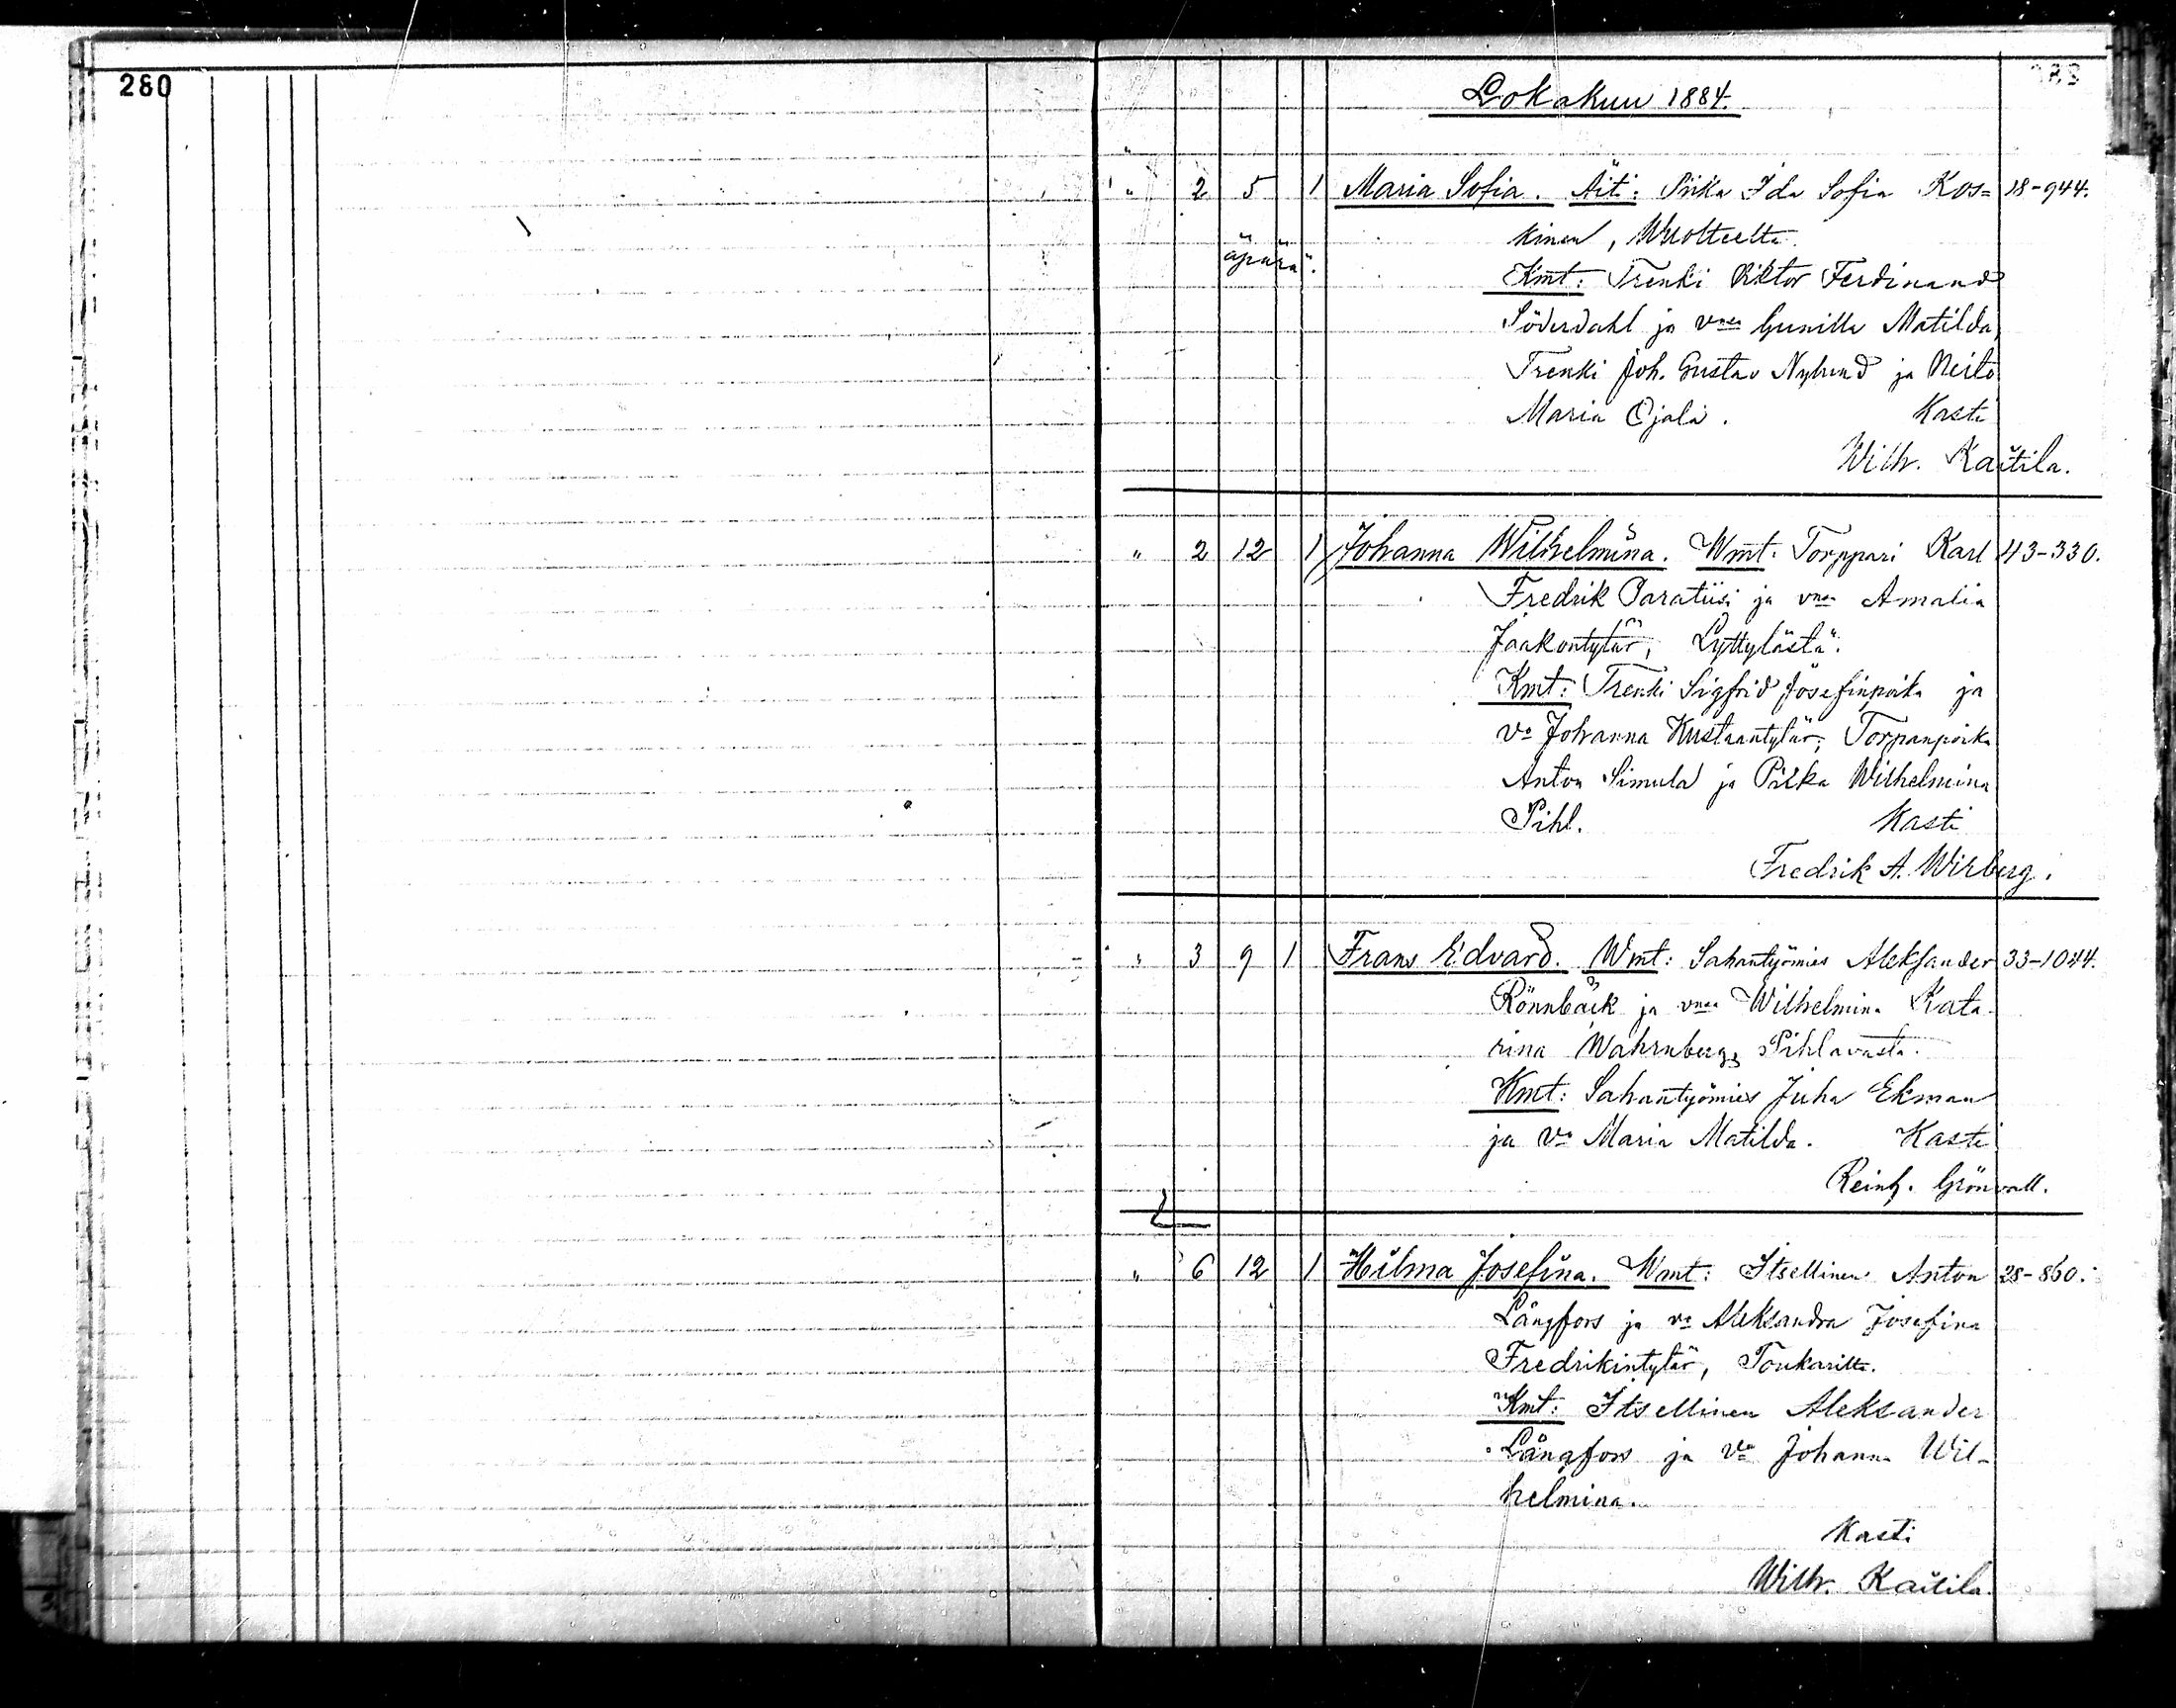 280
Lokakuu 1884.
" 2 5 1 Maria Sofia. Äiti: Piika Ida Sofia Kos= 18-944.
kinen, Wuolteelta
äpärä. Kmt: Trenki Viktor Ferdinand
Söderdahl ja vmsa Gunilla Matilda,
Trenki Joh. Gustav Nylund ja Neito
Maria Ojala. Kasti
Wilh. Kaitila.
" 2 12 1 Johanna Wilhelmina. Wmt: Torppari Karl 43-330.
Fredrik Paratiisi ja vmsa Amalia
Jaakontytär, Lyttylästä.
Kmt: Trenki Sigfrid Josefinpoika ja
va Johanna Kustaantytär; Torpanpoika
Anton Simula ja Piika Wilhelmina
Pihl. Kasti
Fredrik A. Wirberg.
" 3 9 1 Frans Edvard. Wmt: Sahantyömies Aleksander 33-1044.
Rönnbäck ja vmsa Wilhelmina Kata-
rina Wahrnberg, Pihlavasta.
Kmt: Sahantyömies Juha Ekman
ja va Maria Matilda. Kasti
Reinh. Grönvall.
" 6 12 1 Hilma Josefina. Wmt: Itsellinen Anton 28-860.
Långfors ja va Aleksandra Josefina
Fredrikintytär, Toukarilta.
Kmt: Itsellinen Aleksander
Långfors ja va Johanna Wil-
helmina.
Kasti
Wilh. Kaitila.